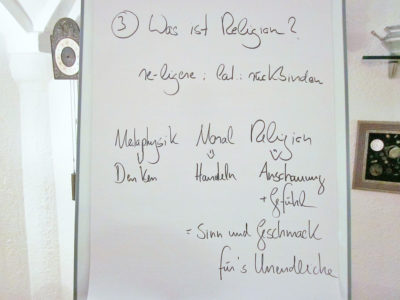 ③ Was ist Religion?
re-ligere : lat.: rückbinden
Metaphysik Moral Religion
Denken Handeln Anschauung
+ Gefühl
= Sinn und Geschmack
für's Unendliche